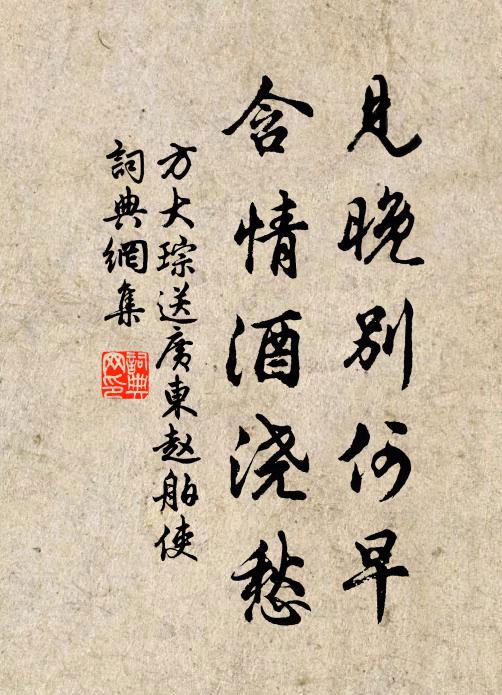 见晚别何早
含情酒浇愁
方大琮送廣東赵舶使
詞典網集
詞典
网印